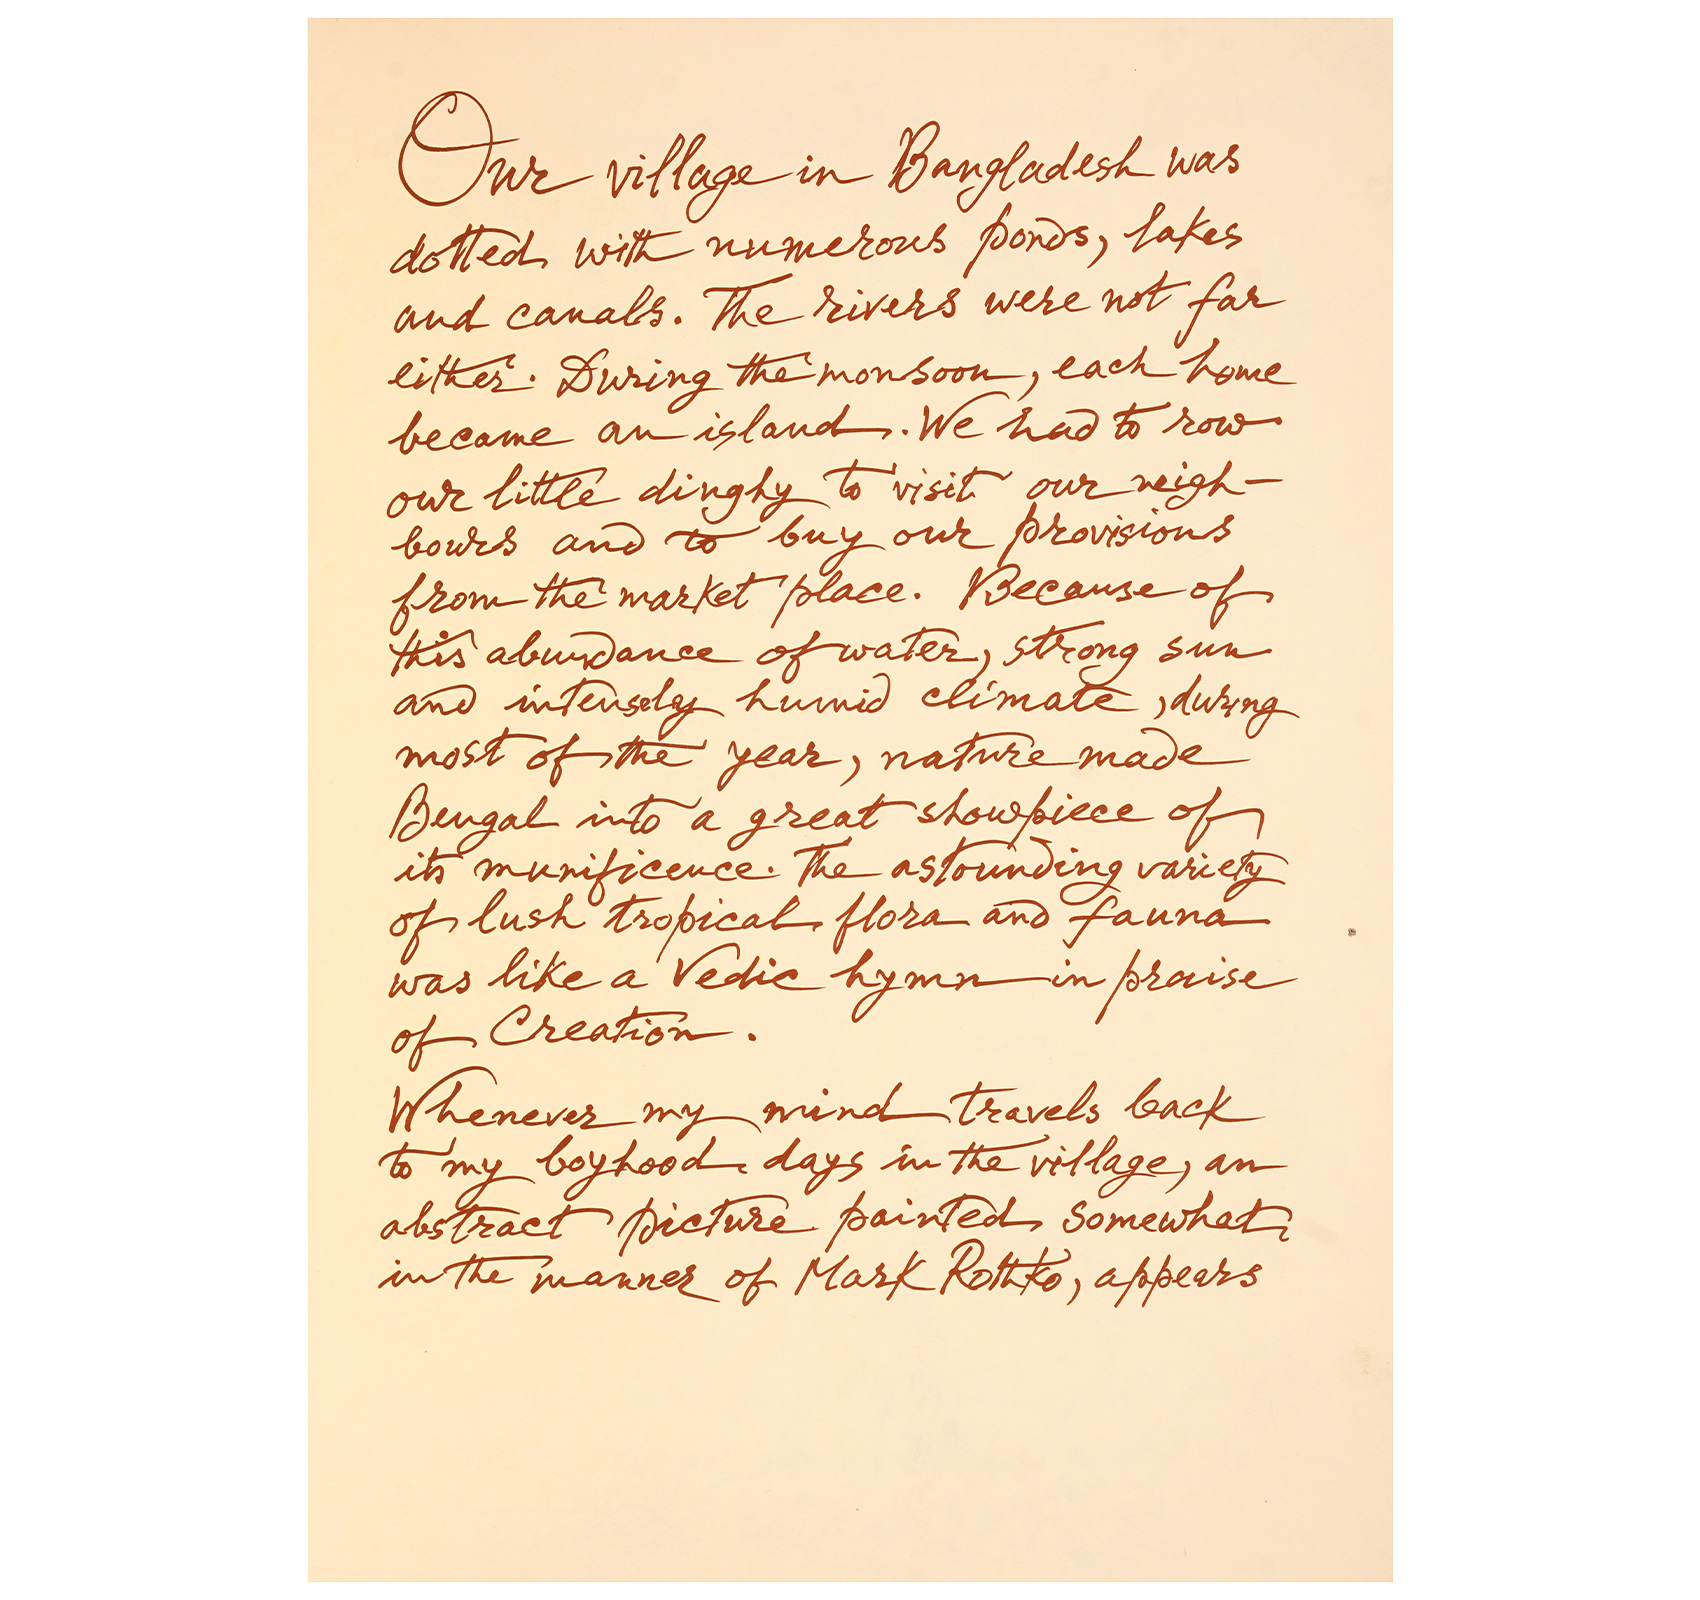 Our village in Bangladesh was
dotted with numerous ponds, lakes
and canals. The rivers were not far
either. During the monsoon, each home
became an island. We had to row
our little dinghy to visit our neigh-
bours and to buy our provisions
from the market place. Because of
this abundance of water, strong sun
and intensely humid climate, during
most of the year, nature made
Bengal into a great showpiece of
its munificence. The astounding variety
of lush tropical flora and fauna
was like a Vedic hymn in praise
of Creation.
Whenever my mind travels back
to my boyhood days in the village, an
abstract picture painted somewhat
in the manner of Mark Rothko, appears